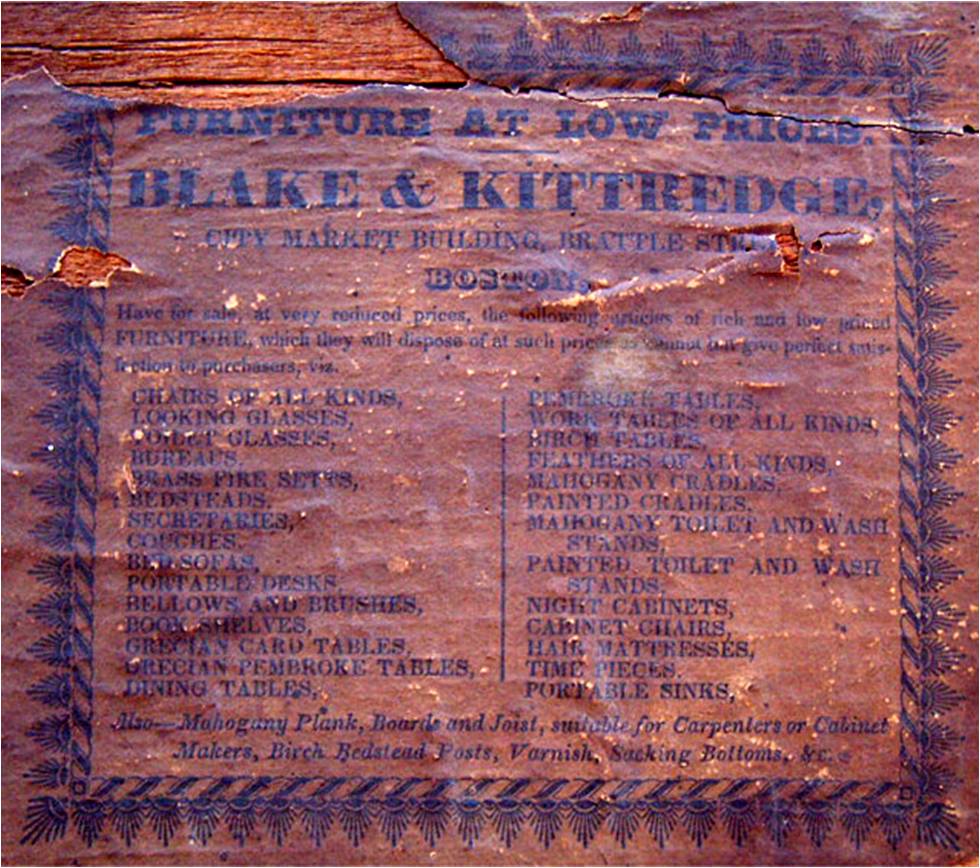 FURNITURE AT LOW PRICES.
BLAKE & KITTREDGE,
CITY MARKET BUILDING, BRATTLE
BOSTON,
Have for sale, at very reduced prices, the following articles of rich and low priced
FURNITURE, which they will dispose of at such prices as cannot but give perfect satis-
faction to purchasers, viz.
CHAIRS OF ALL KINDS,
LOOKING GLASSES,
TOILET GLASSES,
BUREAUS.
BRASS FIRE SETTS,
BEDSTEADS.
SECRETARIES,
COUCHES.
BED SOFAS,
PORTABLE DESKS.
BELLOWS AND BRUSHES,
BOOK SHELVES,
GRECIAN CARD TABLES,
GRECIAN PEMBROKE TABLES,
DINING TABLES,
PEMBROKE TABLES,
WORK TABLES OF ALL KINDS,
BIRCH TABLES,
FEATHERS OF ALL KINDS,
MAHOGANY CRADLES,
PAINTED CRADLES.
MAHOGANY TOILET AND WASH
STANDS,
PAINTED TOILET AND WASH
STANDS.
NIGHT CABINETS,
CABINET CHAIRS,
HAIR MATTRESSES,
TIME PIECES.
PORTABLE SINKS,
Also—Mahogany Plank, Boards and Joist, suitable for Carpenters or Cabinet
Makers, Birch Bedstead Posts, Varnish, Sacking Bottoms, &c.